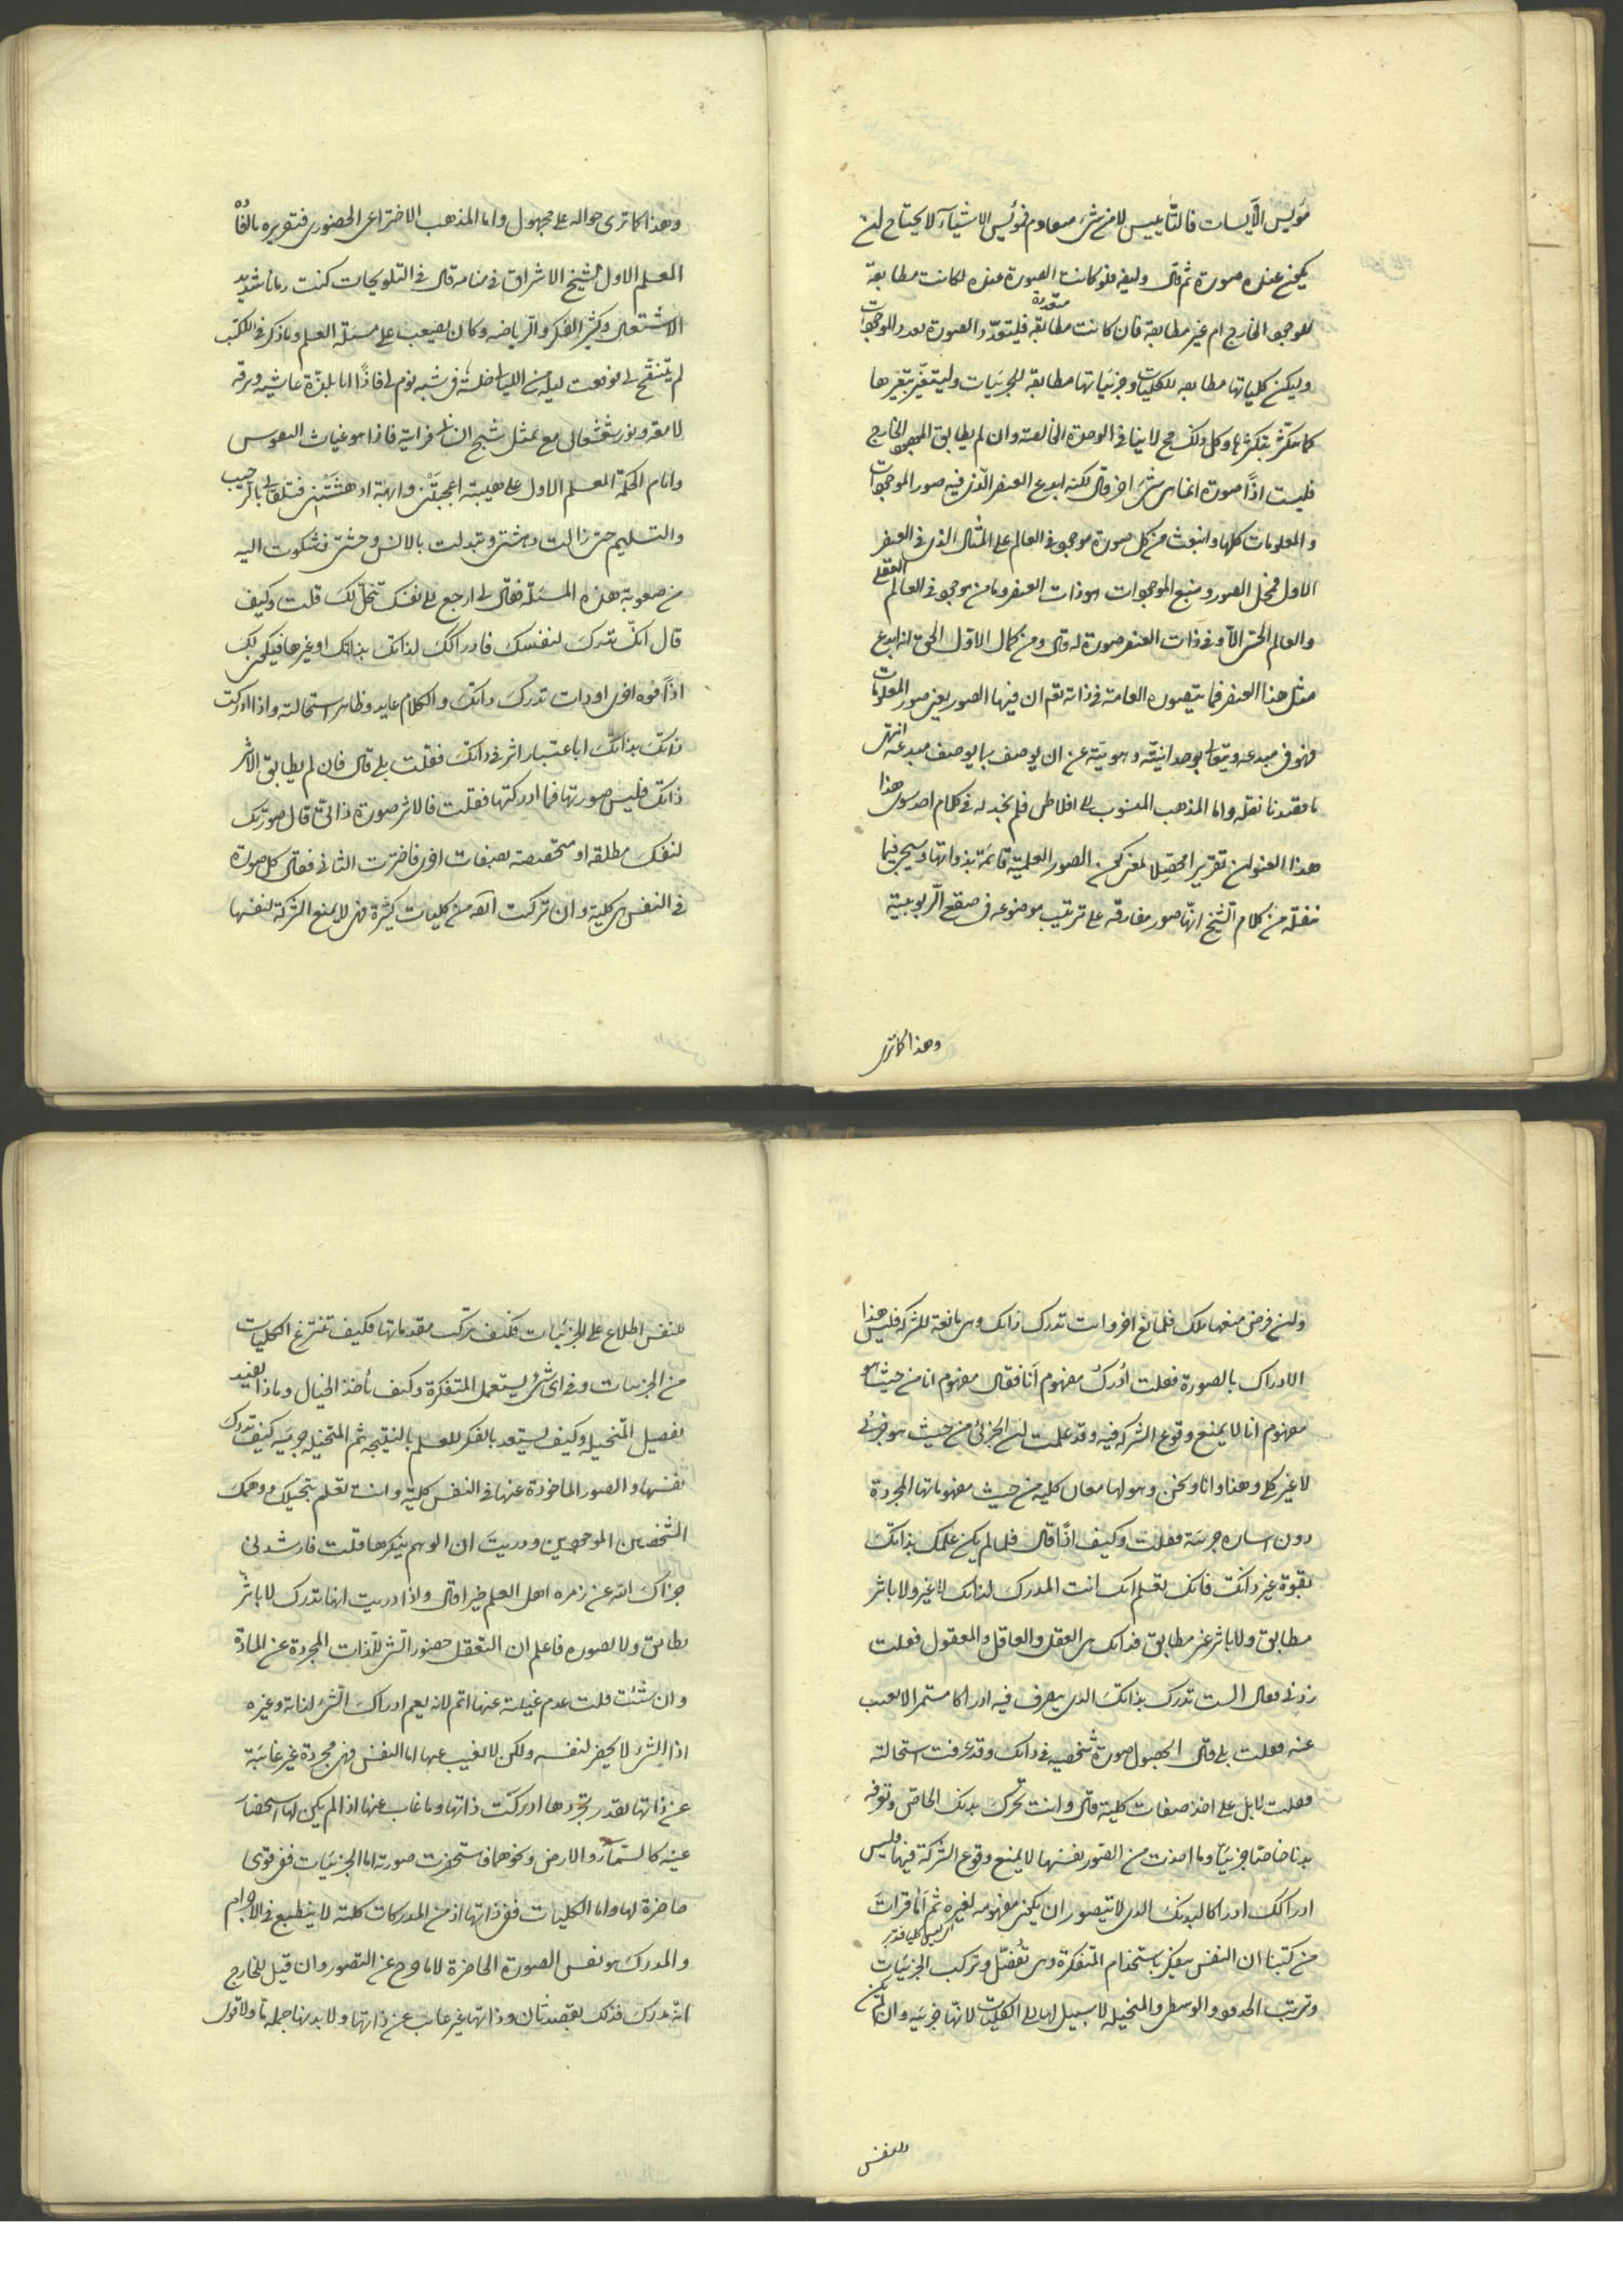 مؤيس الأيسات فالتأييس لا من شئ معدوم فمؤيس الاشيآء لا يحتاج لن
يكون عنده صورة ثم قال وليفه فلو كانت الصورة عنده لكانت مطابقة
للموجود الخارج ام غير مطابقة فان كانت مطابقه فليتعدّد الصورة بعدد الموجودات
متعددة
وليكن كلياتها مطابقه للكليات وجزئياتها مطابقه للجزئيات وليتغيّر بتغيرها
كما تتكثر بتكثرها وكل ذلك مح لا ينافى الوحدة الخالصة وان لم يطابق الموجود الخارج
فليست اذًا صورة انما هى شئ اخر قال لكنه ابدع العنصر الّذى فيه صور الموجودات
والمعلومات كلها وانبعث من كل صورة موجود فى العالم على المثال الذى فى العنصر
الاول فمحل الصور ومنبع الموجودات هو ذات العنصر وما من موجود فى العالم العقلى
والعالم الحسّى الاّ وفى ذات العنصر صورة له قال ومن كمال الاوّل الحق انه ابدع
مثل هذا العنصر فما يتصوره العامة فى ذاته تع ان فيها الصور يعنى صور المعلومات
فهو فى مبدعه ويتعالى بوحدانيّته وهويّته عن ان يوصف بما يوصف مبدعه انتهى
ما قصدنا نقله واما المذهب المنسوب الى افلاطن فلم نجد له فى كلام احد سوى هذا
هذا العنوان تقريرا محصّلا لمعنى كون الصور العلمية قائمة بذواتها وسيجئ فيما
ننقله من كلام الشّيخ انّها صور مفارقه على ترتيب موضوعه فى صقع الرّبوبيية
وهذا كما ترى
وهذا كما ترى حواله على مجهول واما المذهب الاختراعى الحضورى فتقريره ما القاه
المعلم الاول لشيخ الاشراق فى منامه قال فى التلويحات كنت زمانا شديد
الاشتغال وكثير الفكر والرياضه وكان يصعب على مسئلة العلم وما ذكر فى الكتب
لم يتنقّح لى فوقعت ليلة من الليالى خلسة فى شبه نوم لى فاذًا انا بلذّة غاشيه وبرقه
لامعه ونور شعشعانى مع تمثل شبح انسانى فرايته فاذا هو غياث النفوس
وامام الحكمة المعلم الاول على هيبته اعجبتنى وابهة ادهشتنى فتلقانى بالترحيب
والتسليم حتى زالت دهشتى وتبدلت بالانس وحشتى فشكوت اليه
من صعوبة هذه المسئلة فقال لى ارجع الى نفسك تنحلّ لك قلت وكيف
قال انك تدرك لنفسك فادراكك لذاتك بذاتك او غيرها فيكون لك
اذًا قوه اخرى او ذات تدرك ذاتك والكلام عايد وظاهر استحالته واذا ادركت
ذاتك بذاتك اباعتبار اثر فى ذاتك فقلت بلى قال فان لم يطابق الاثر
ذاتك فليس صورتها فما ادركتها فقلت فالاثر صورة ذاتى قال صورتك
لنفسك مطلقه او متخصصه بصفات اخرى فاخترت الثانى فقال كل صورة
فى النفس هى كلية وان تركبت ايضه من كليات كثيرة فهى لا يمنع الشركة لنفسها
ولئن فرض منعها تلك فلمانع اخر وانت تدرك ذاتك وهى مانعة للشركه فليس هذا
الادراك بالصورة فقلت أدرك مفهوم أنا فقال مفهوم انا من حيث هو
مفهوم انا لا يمنع وقوع الشركه فيه وقد علمت لن الجزئى من حيث هو جزئى
لا غير كلى وهذا وانا ونحن وهو لها معان كليه من حيث مفهوماتها المجردة
دون اشاره جزئيه فقلت وكيف اذًا قال فلما لم يكن علمك بذاتك
بقوة غير ذاتك فانك تعلم انك انت المدرك لذاتك لا غير ولا باثر
مطابق ولا باثر غير مطابق فذاتك هى العقل والعاقل والمعقول فقلت
زدنى فقال الست تدرك بذاتك الذى يتصرف فيه ادراكا مستمرا لا يغيب
عنه فقلت بلى قال ابحصول صورة شخصيه فى ذاتك وقد عرفت استحالته
فقلت لا بل على اخذ صفات كلية قال وانت تحرك بدنك الخاصّ وتعرفه
بدنا خاصّا جزئيا وما اخذت من الصور نفسها لا يمنع وقوع الشركة فيها فليس
ادراكك ادراكا لبدنك الذى لا يتصور ان يكون مفهومه لغيره ثم أما قرات
من كتبنا ان النفس يتفكر باستخدام المتفكرة وهى تُفصّل وتركب الجزئيات
وترتب الحدود الوسطى والمتخيله لا سبيل لها الى الكليات لانّها جزئيه وان لم يكن
للنفس
للنفس اطلاع على الجزئيات فكيف تركّب مقدماتها وكيف تنتزع الكليات
من الجزئيات وفى اى شئ يستعمل المتفكرة وكيف تأخذ الخيال وماذا يفيد
تفصيل المتخيله وكيف يستعد بالفكر للعلم بالنتيجه ثم المتخيله جزئيه كيف تدرك
نفسها والصور الماخوذة عنها فى النفس كلية وانت تعلم بتخيلك ووهمك
الشخصين الموجودين ودريت ان الوهم ينكرها قلت فارشدنى
جزاك الله عن زمره اهل العلم خيرا قال واذا دريت انها تدرك لا باثر
يطابق ولا بصوره فاعلم ان التعقل حضور الشئ للذات المجردة عن المادّة
وان شئت قلت عدم غيبته عنها اتم لانه يعم ادراك الشئ لذاته وغيره
اذ الشئ لا يحضر لنفسه ولكن لا يغيب عنها اما النفس فهى مجردة غير غائبة
عن ذاتها فبقدر تجردها ادركت ذاتها وما غاب عنها اذا لم يكن لها استحضار
عينه كالسّمآء والارض ونحوهما فاستحضرت صورته اما الجزئيات ففى قوى
حاضرة لها واما الكليات ففى ذاتها اذ من المدركات كلية لا ينطبع فى الاجرام
والمدرك هو نفس الصورة الحاضرة لا ما خرج عن التصور وان قيل للخارج
انه مدرك فذلك بقصد ثان وذاتها غير غائب عن ذاتها ولا بدنها جملة ما ولا قوى